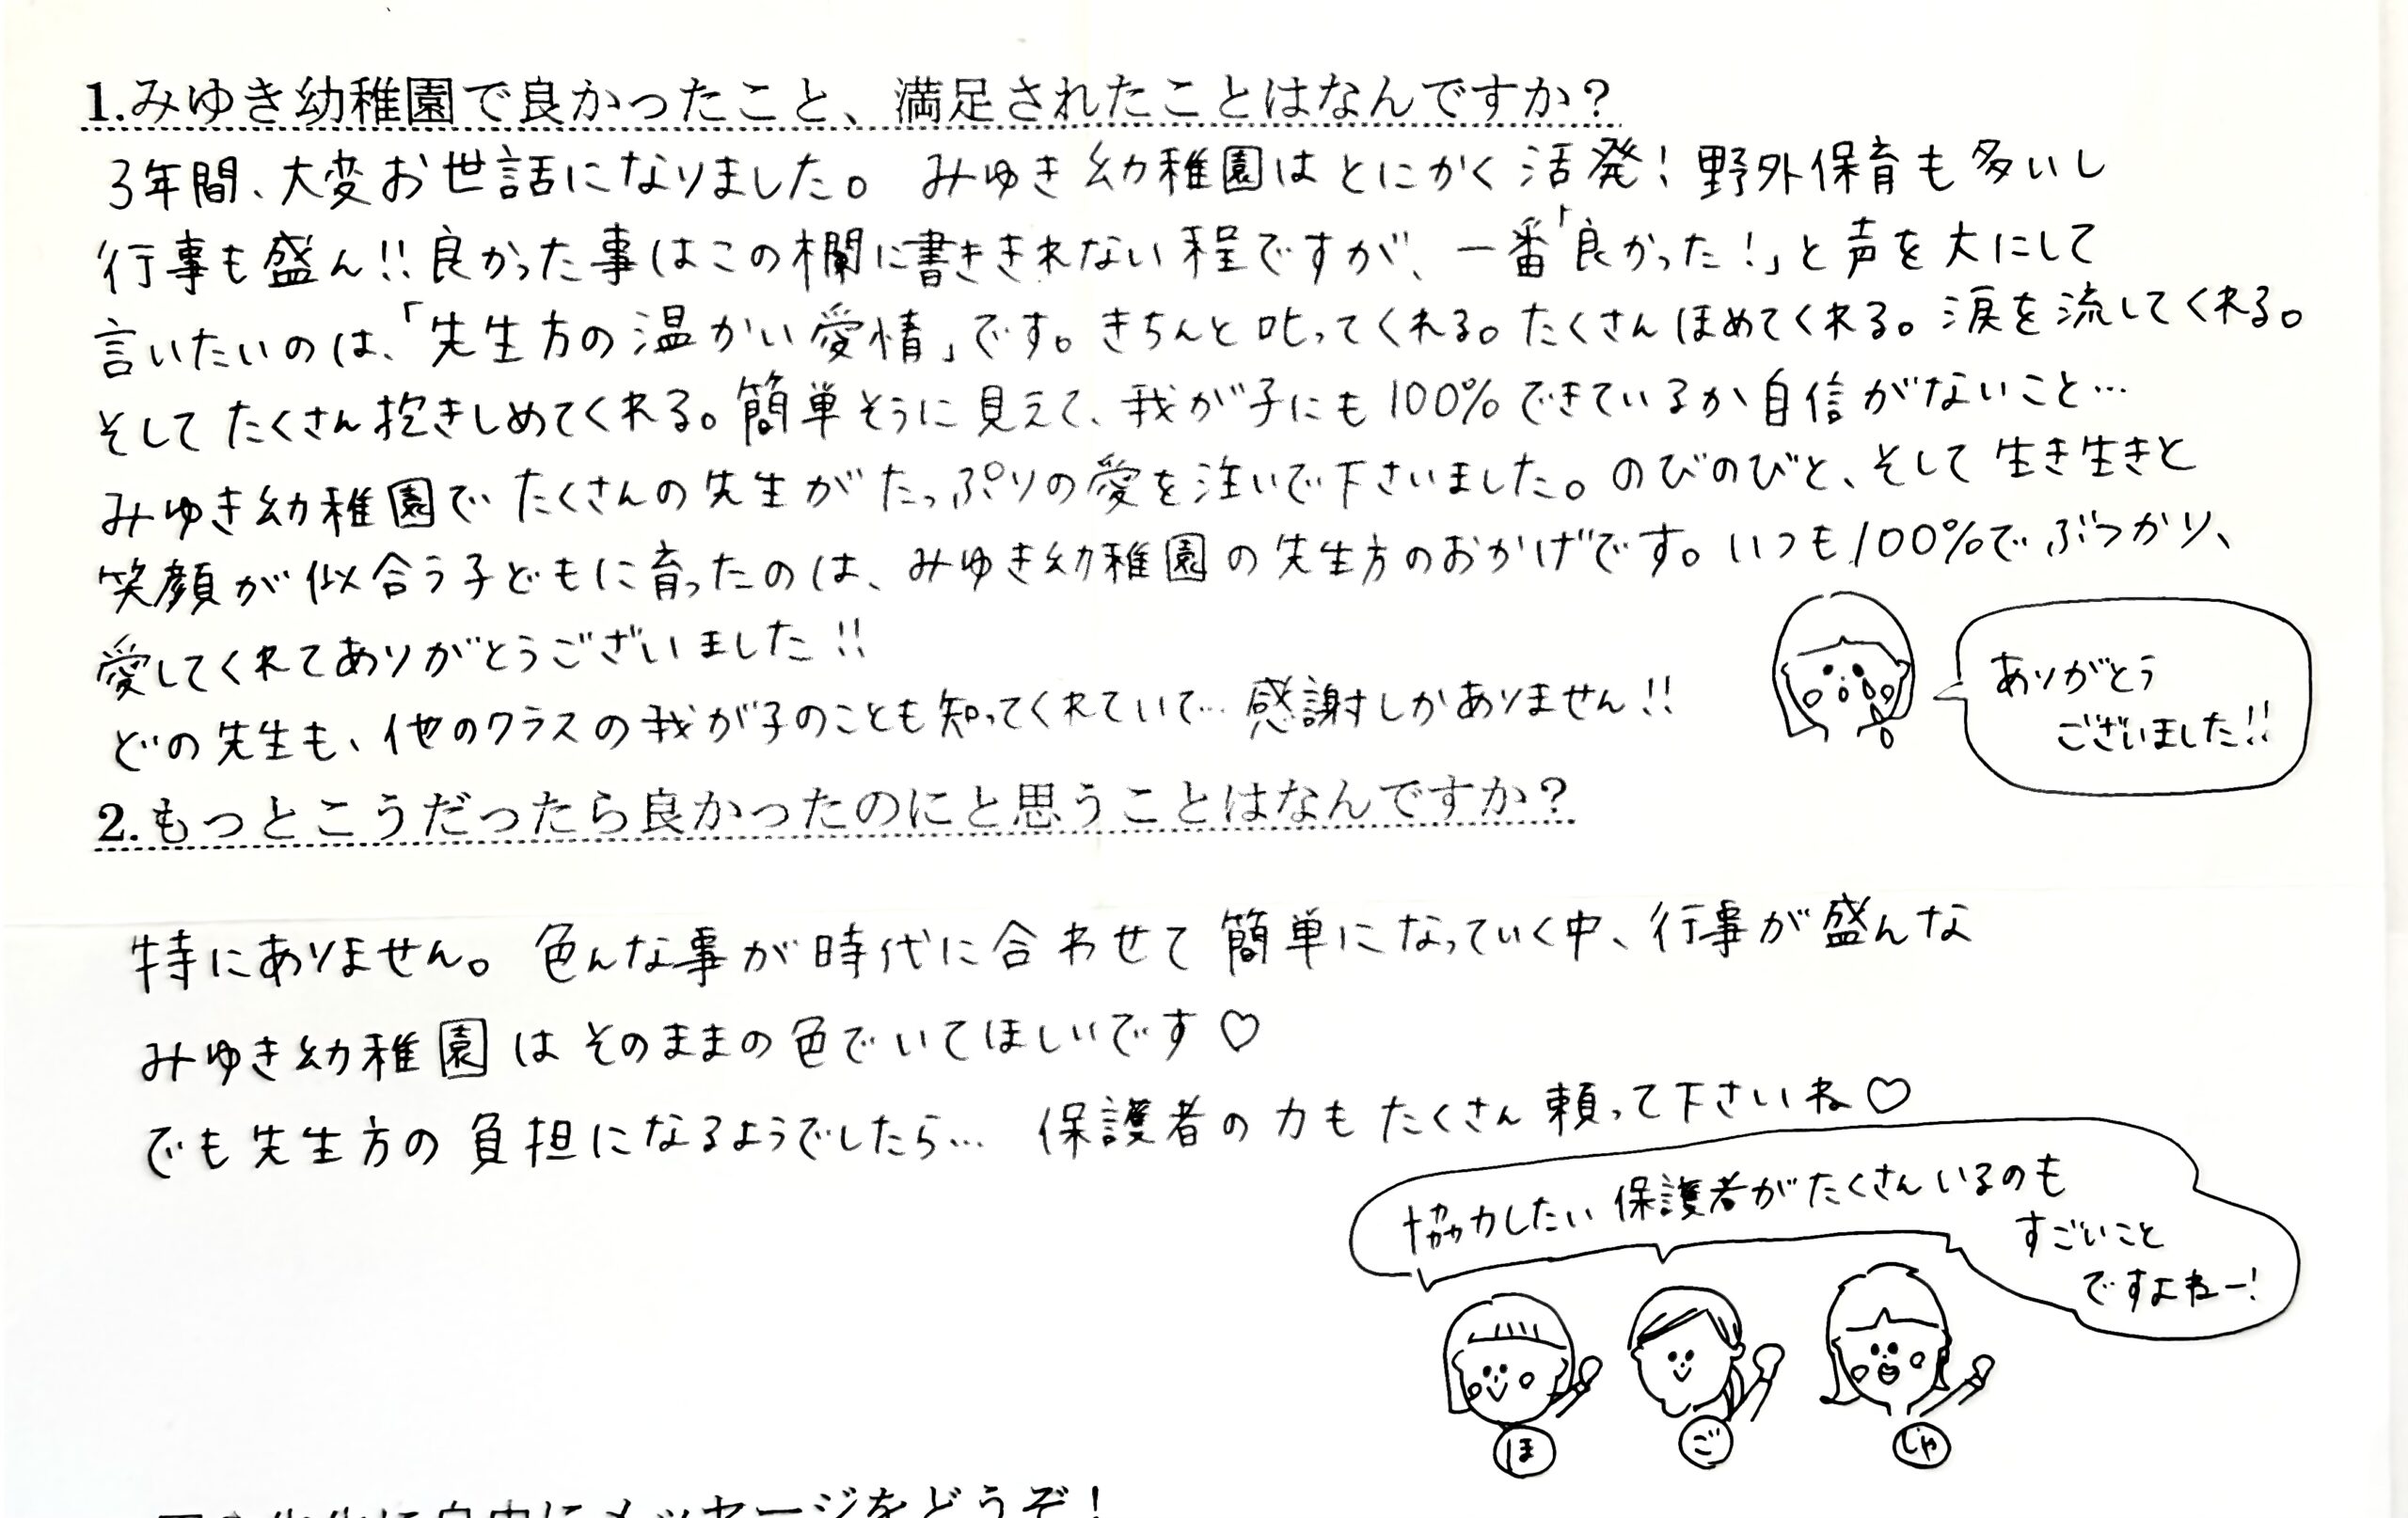 1.みゆき幼稚園で良かったこと、満足されたことはなんですか？
3年間、大変お世話になりました。 みゆき幼稚園はとにかく活発！野外保育も多いし
行事も盛ん!!良かった事はこの欄に書ききれない程ですが、一番「良かった！」と声を大にして
言いたいのは、「先生方の温かい愛情」です。きちんと叱ってくれる。たくさんほめてくれる。涙を流してくれる。
そしてたくさん抱きしめてくれる。簡単そうに見えて、我が子にも100%できているか自信がないこと…
みゆき幼稚園でたくさんの先生がたっぷりの愛を注いで下さいました。のびのびと、そして生き生きと
笑顔が似合う子どもに育ったのは、みゆき幼稚園の先生方のおかげです。いつも100%でぶつかり、
愛してくれてありがとうございました!!
どの先生も、他のクラスの我が子のことも知ってくれていて…感謝しかありません!!
ありがとう
ございました!!
2.もっとこうだったら良かったのにと思うことはなんですか？
特にありません。色んな事が時代に合わせて簡単になっていく中、行事が盛んな
みゆき幼稚園はそのままの色でいてほしいです♡
でも先生方の負担になるようでしたら… 保護者の力もたくさん頼って下さいね♡
協力したい保護者がたくさんいるのも
すごいこと
ですよねー!
ほ ご しゃ
に自由にメッセージをどうぞ！